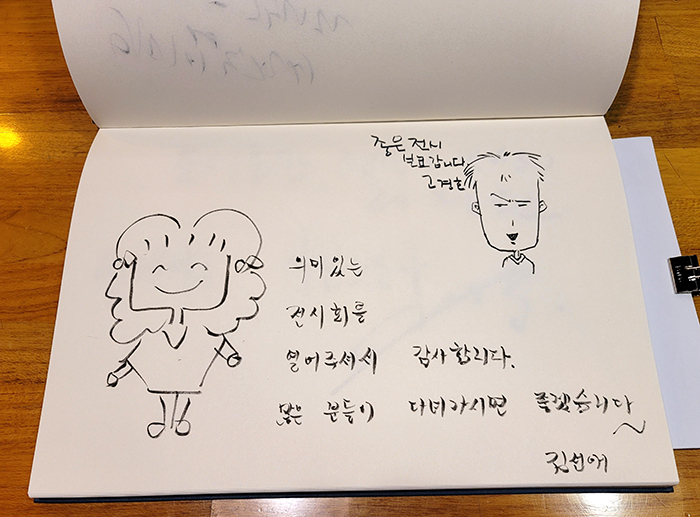 좋은 전시
보고갑니다
고경환
의미있는
전시회를
열어주셔서 감사합니다.
많은 분들이 다녀가시면 좋겠습니다~
김선애